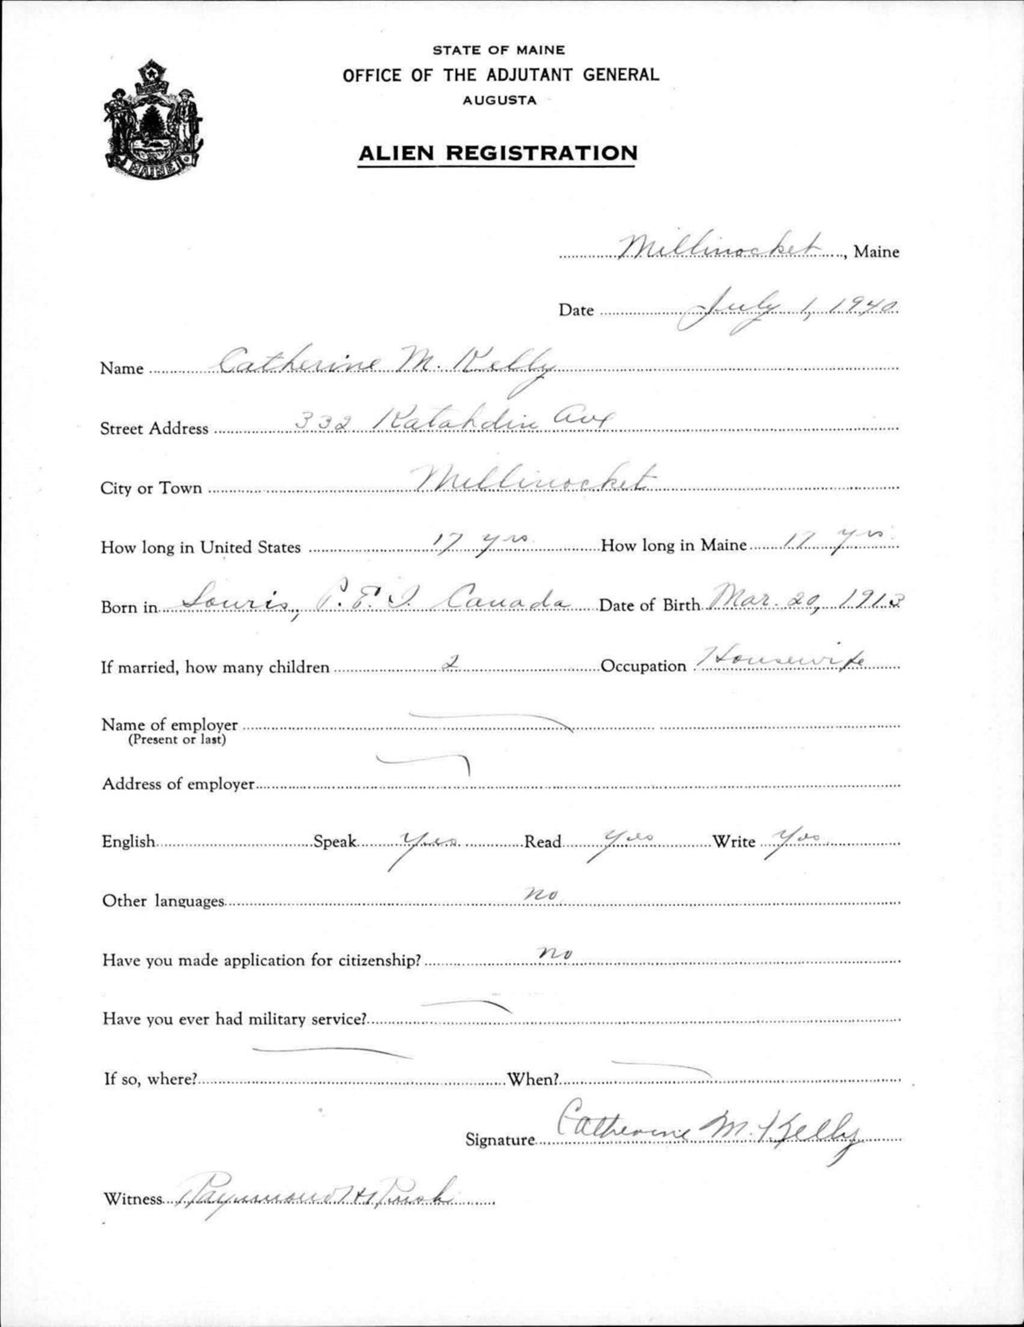 STATE OF MAINE
OFFICE OF THE ADJUTANT GENERAL
AUGUSTA
ALIEN REGISTRATION
MAINE
Millinocket, Maine
Date July 1, 1940
Name Catherine M. Kelly
Street Address 332 Katahdin Ave
City or Town Millinocket
How long in United States 17 yrs How long in Maine 17 yrs
Born in Souris, P.E.I. Canada Date of Birth Mar. 20, 1913
If married, how many children 2 Occupation Housewife
Name of employer
(Present or last)
Address of employer
English Speak Yes Read Yes Write Yes
Other languages no
Have you made application for citizenship? no
Have you ever had military service?
If so, where? When?
Signature Catherine M. Kelly
Witness Raymond H.